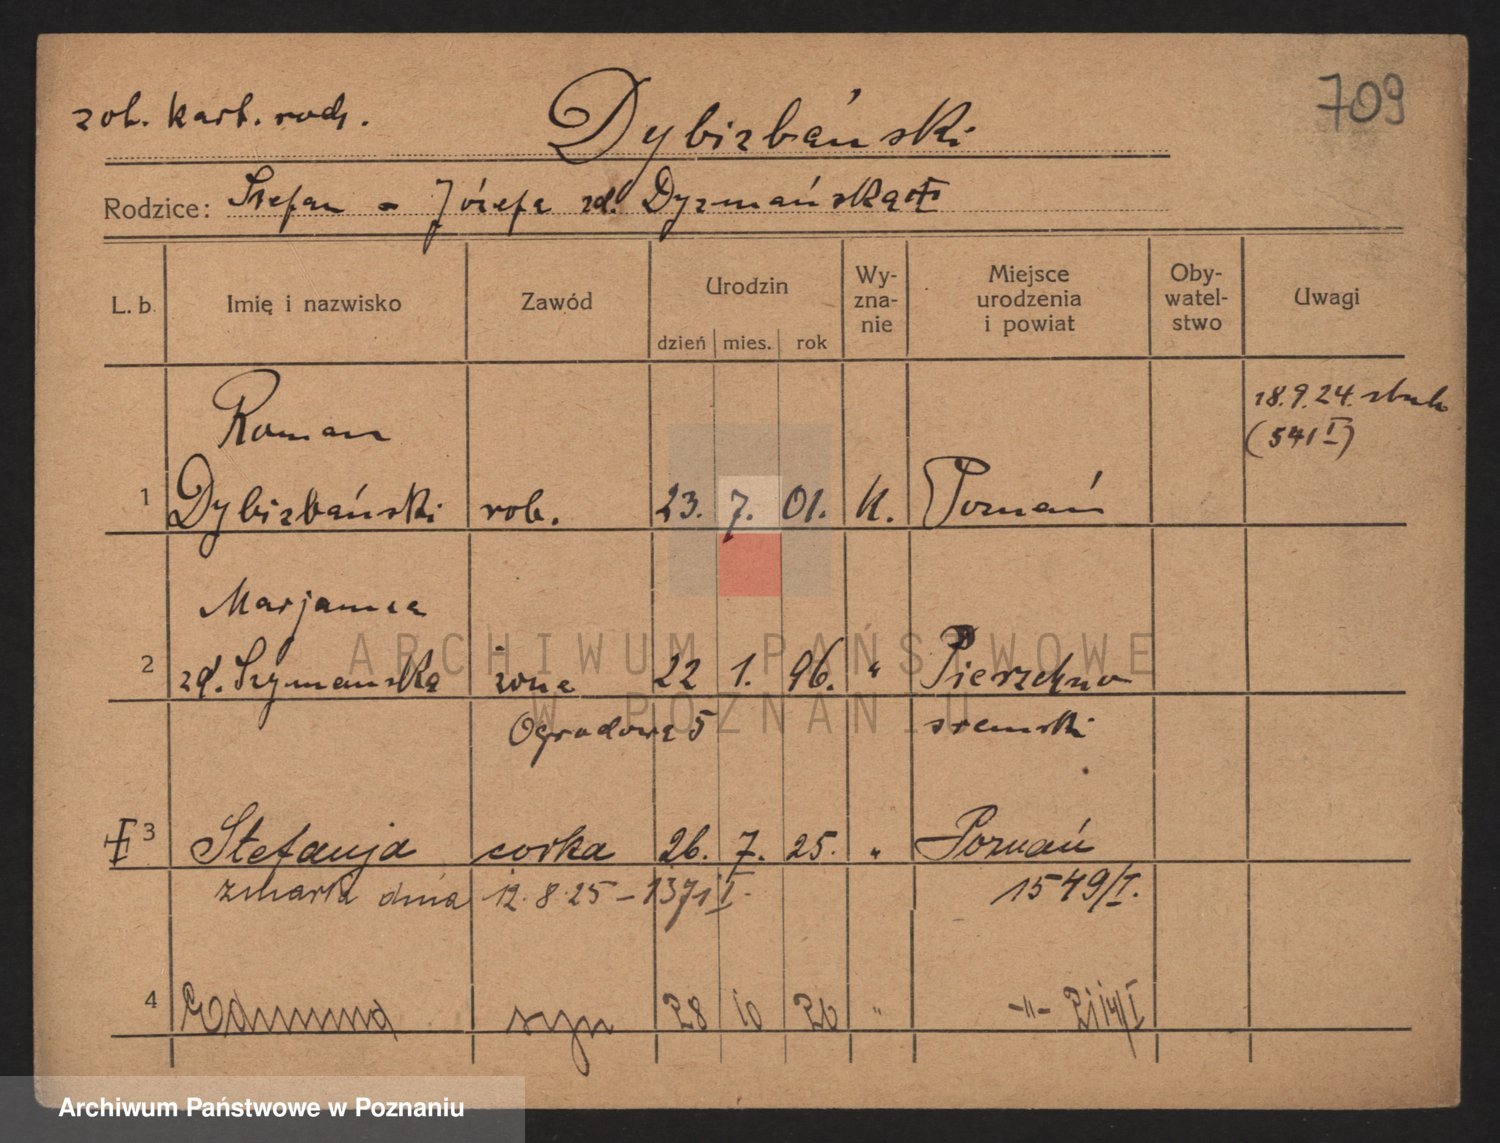 zob. kart. rodz.
Dybizbański
709
Rodzice: Stefan - Józefa zd. Dyzmańska
L. b.
Imię i nazwisko
Zawód
Urodzin
dzień mies. rok
Wy-
zna-
nie
Miejsce
urodzenia
i powiat
Oby-
watel-
stwo
Uwagi
18.9.24.
(541 I)
Roman
1 Dybizbański rob. 23. 7. 01. K. Poznań
Marjanna
2 zd. Szymańska żona 22 1. 96. " Pierzchno
Ogrodowa 5 sremski
3 Stefanja corka 26. 7. 25. " Poznań
zmarła dnia 12.8.25 - 1371 I. 1549/I.
4 Edmund syn 28 10 26 " -"- 2114/I
ARCHIWUM PAŃSTWOWE
W POZNANIU
Archiwum Państwowe w Poznaniu